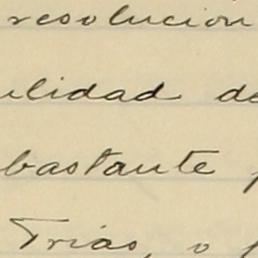 resolucion
ilidad de
bastante
Trias, o